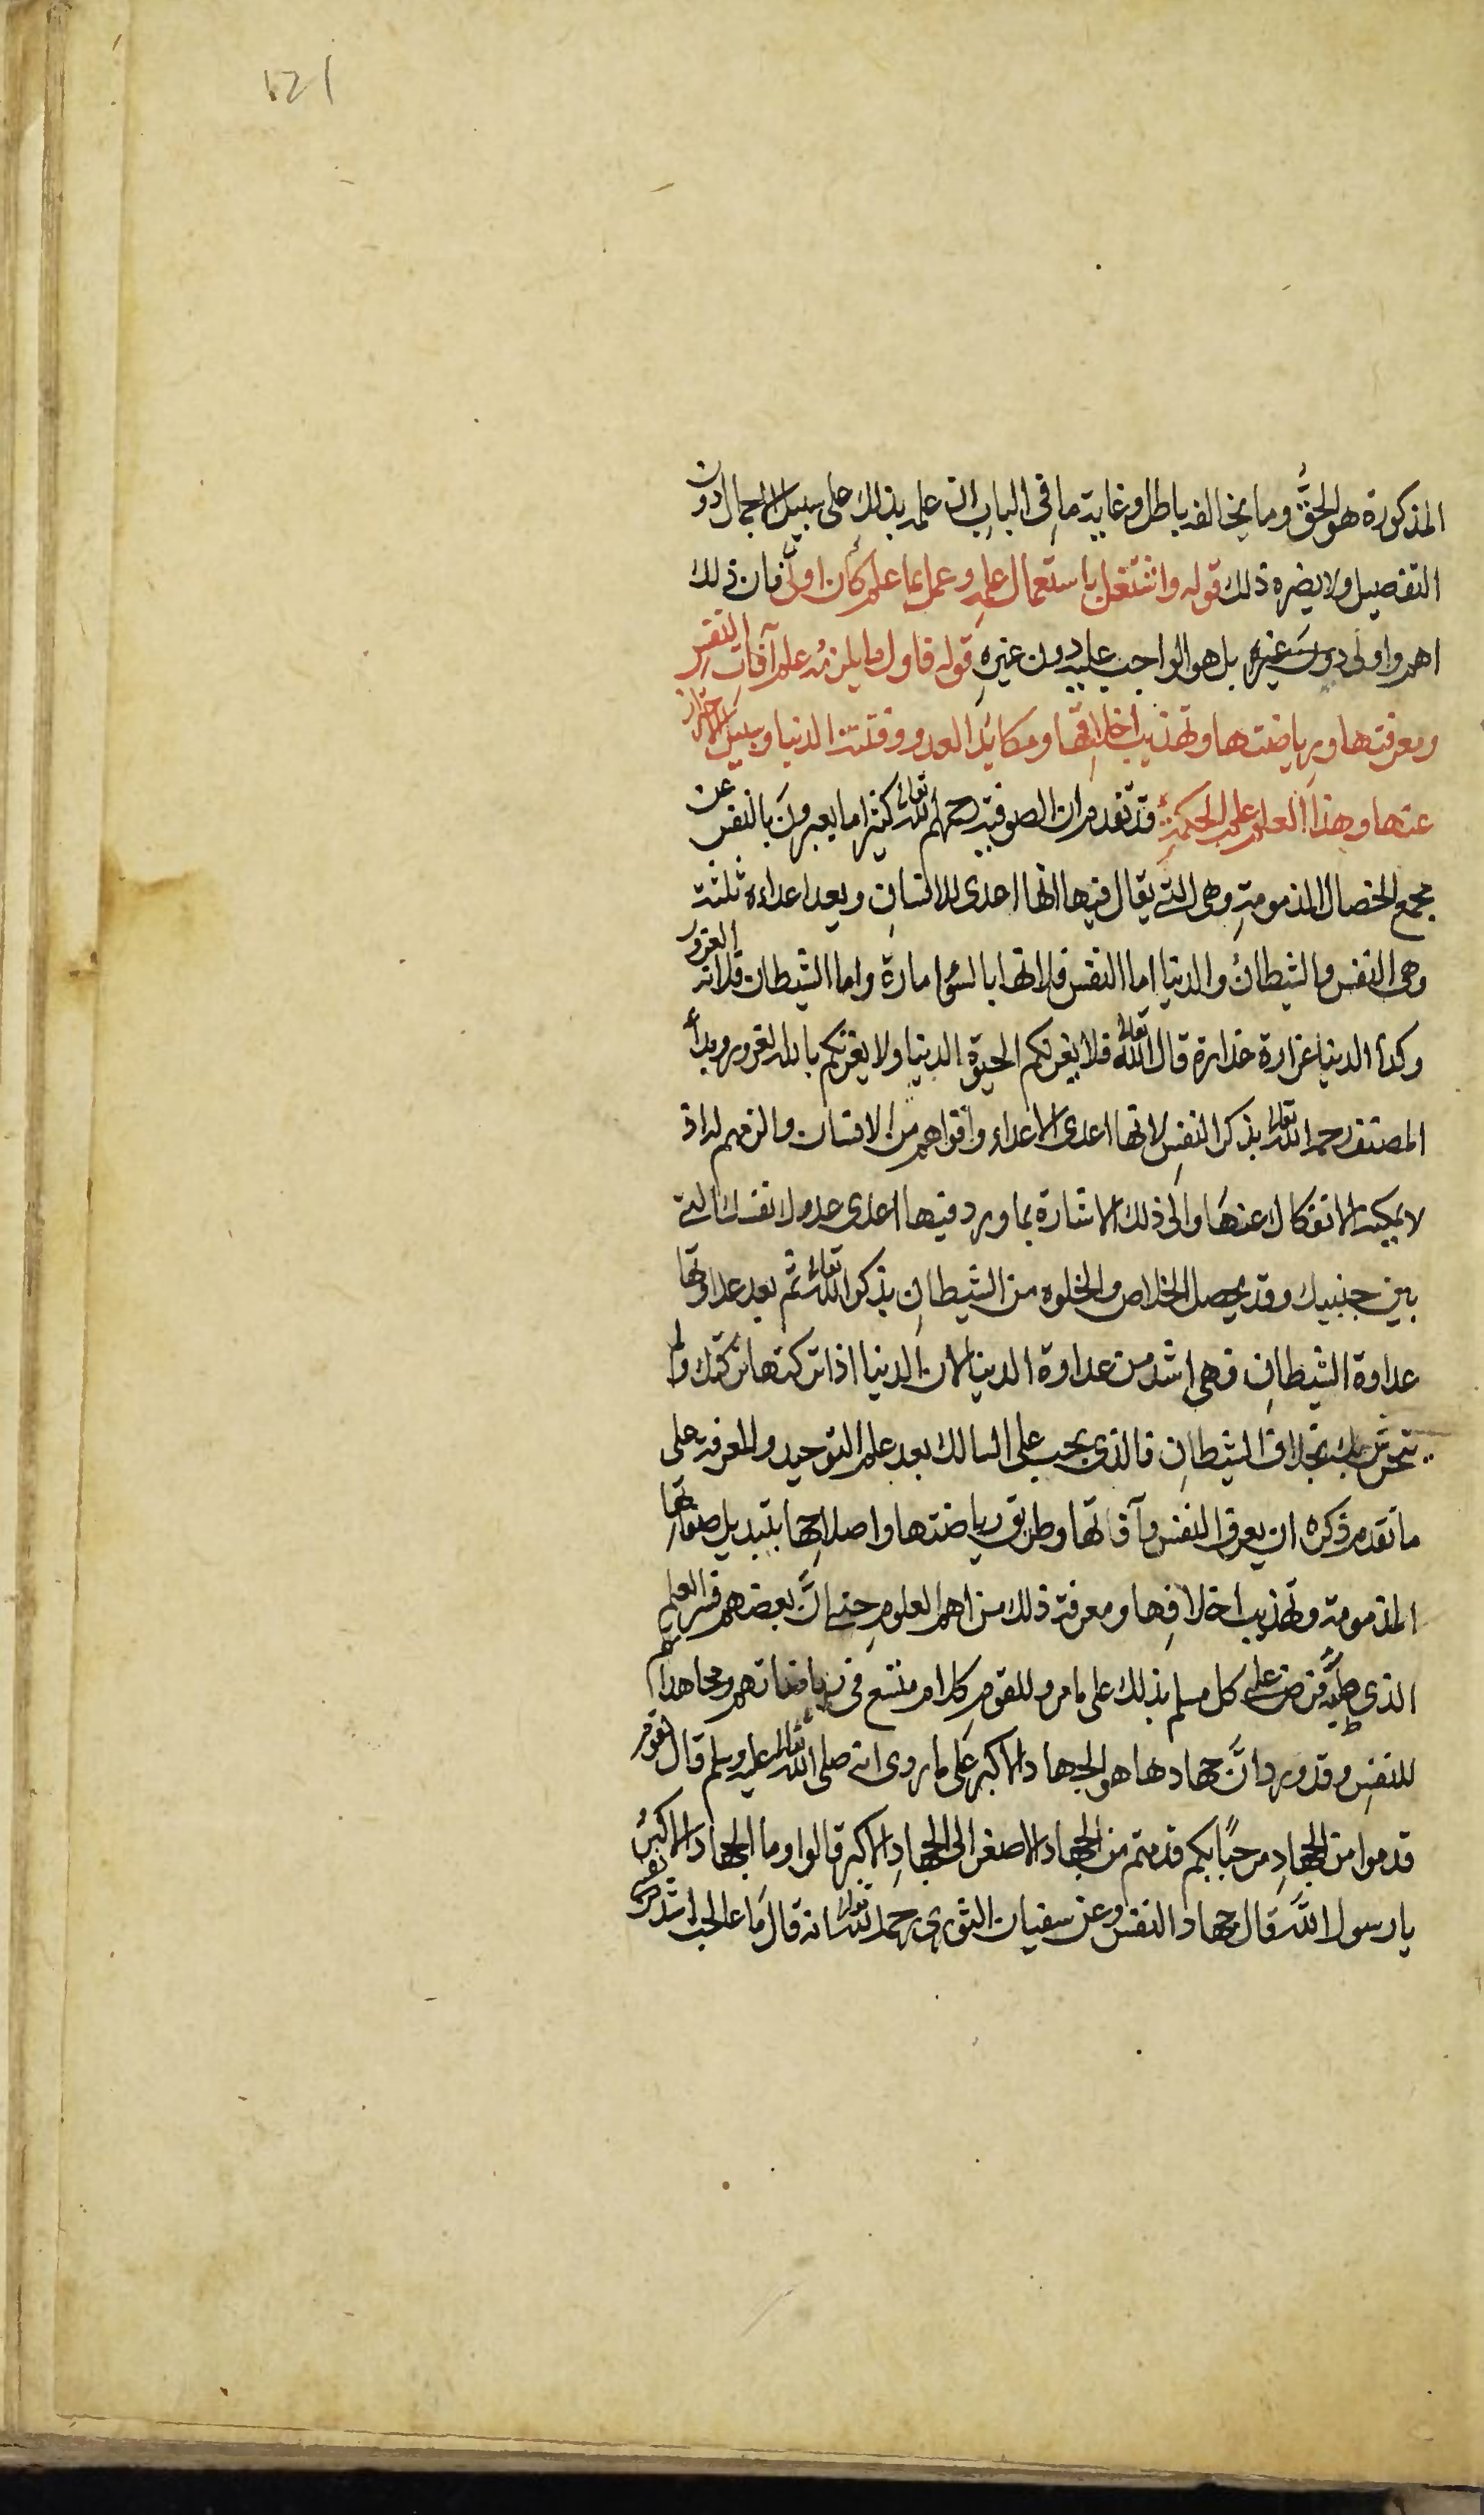 121
المذكورة هو الحق وما يخالفه باطل وغاية ما في الباب ان علمه بذلك على سبيل الاجمال دون
التفصيل ولا يضره ذلك قوله واشتغل باستعمال علمه وعمل بما علم كان اولى فان ذلك
اهم واولى دون غيره بل هو الواجب عليه دون غيره قوله فاول ما يلزمه علم آفات النفس
ومعرفتها ورياضتها وتهذيب اخلاقها ومكائد العدو وفتنة الدنيا وسبيل الاحتراز
عنها وهذا العلم علم الحكمة قد تقدم ان الصوفية رحمهم الله تعالى كثيرا ما يعبرون بالنفس عن
مجمع الخصال المذمومة وهي التي يقال فيها انها اعدى للانسان ويعد اعداءه ثلثة
وهى النفس والشيطان والدنيا اما النفس فلانها بالسوء امارة واما الشيطان فلانه الغرور
وكذا الدنيا غرارة غدارة قال الله تعالى فلا يغرنكم الحيوة الدنيا ولا يغرنكم بالله الغرور وبدأ
المصنف رحمه الله تعالى بذكر النفس لانها اعدى الاعداء واقواهم من الانسان والزمهم له اذ
لا يمكنه الانفكاك عنها والى ذلك الاشارة بما ورد فيها اعدى عدوك نفسك التي
بين جنبيك وقد يحصل الخلاص والخلوه من الشيطان بذكر الله تعالى ثم بعد عداوتها
عداوة الشيطان فهى اشد من عداوة الدنيا لان الدنيا اذا تركتها تركتك ولم
تتحرش بك بخلاف الشيطان فالذى يجب على السالك بعد علم التوحيد والمعرفة على
ما تقدم ذكره ان يعرف النفس وآفاتها وطريق رياضتها واصلاحها بتبديل صفاتها
المذمومة وتهذيب اخلاقها ومعرفة ذلك من اهم العلوم حتى انّ بعضهم فسر العلم
الذى طلبه فرض على كل مسلم بذلك على ما مر وللقوم كلام متسع فى رياضاتهم ومجاهداتهم
للنفس وقد ورد انّ جهادها هو الجهاد الاكبر على ما روى انه صلى الله تعالى عليه وسلم قال لقوم
قدموا من الجهاد مرحبًا بكم قدمتم من الجهاد الاصغر الى الجهاد الاكبر قالوا وما الجهاد الاكبر
يا رسول الله قال جهاد النفس وعن سفيان الثوري رحمه الله تعالى انه قال ما عالجت اشد من نفسى